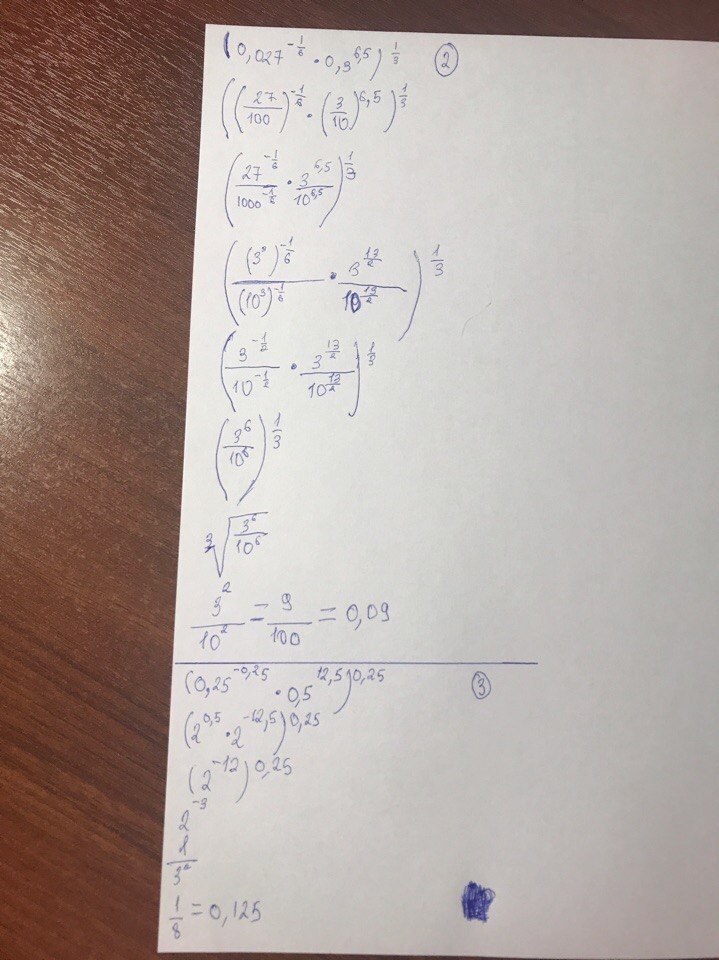 (0,027^{-1/6} · 0,3^{6,5})^{1/3} ②
((27/100)^{-1/6} · (3/10)^{6,5})^{1/3}
(27^{-1/6}/1000^{-1/2} · 3^{6,5}/10^{6,5})^{1/3}
((3^{3})^{-1/6}/(10^{3})^{-1/6} · 3^{13/2}/10^{13/2})^{1/3}
(3^{-1/2}/10^{-1/2} · 3^{13/2}/10^{13/2})^{1/3}
(3^{6}/10^{6})^{1/3}
∛(3^{6}/10^{6})
3^{2}/10^{2} = 9/100 = 0,09
(0,25^{-0,25} · 0,5^{12,5})^{0,25} ③
(2^{0,5} · 2^{-12,5})^{0,25}
(2^{-12})^{0,25}
2^{-3}
1/8 = 0,125